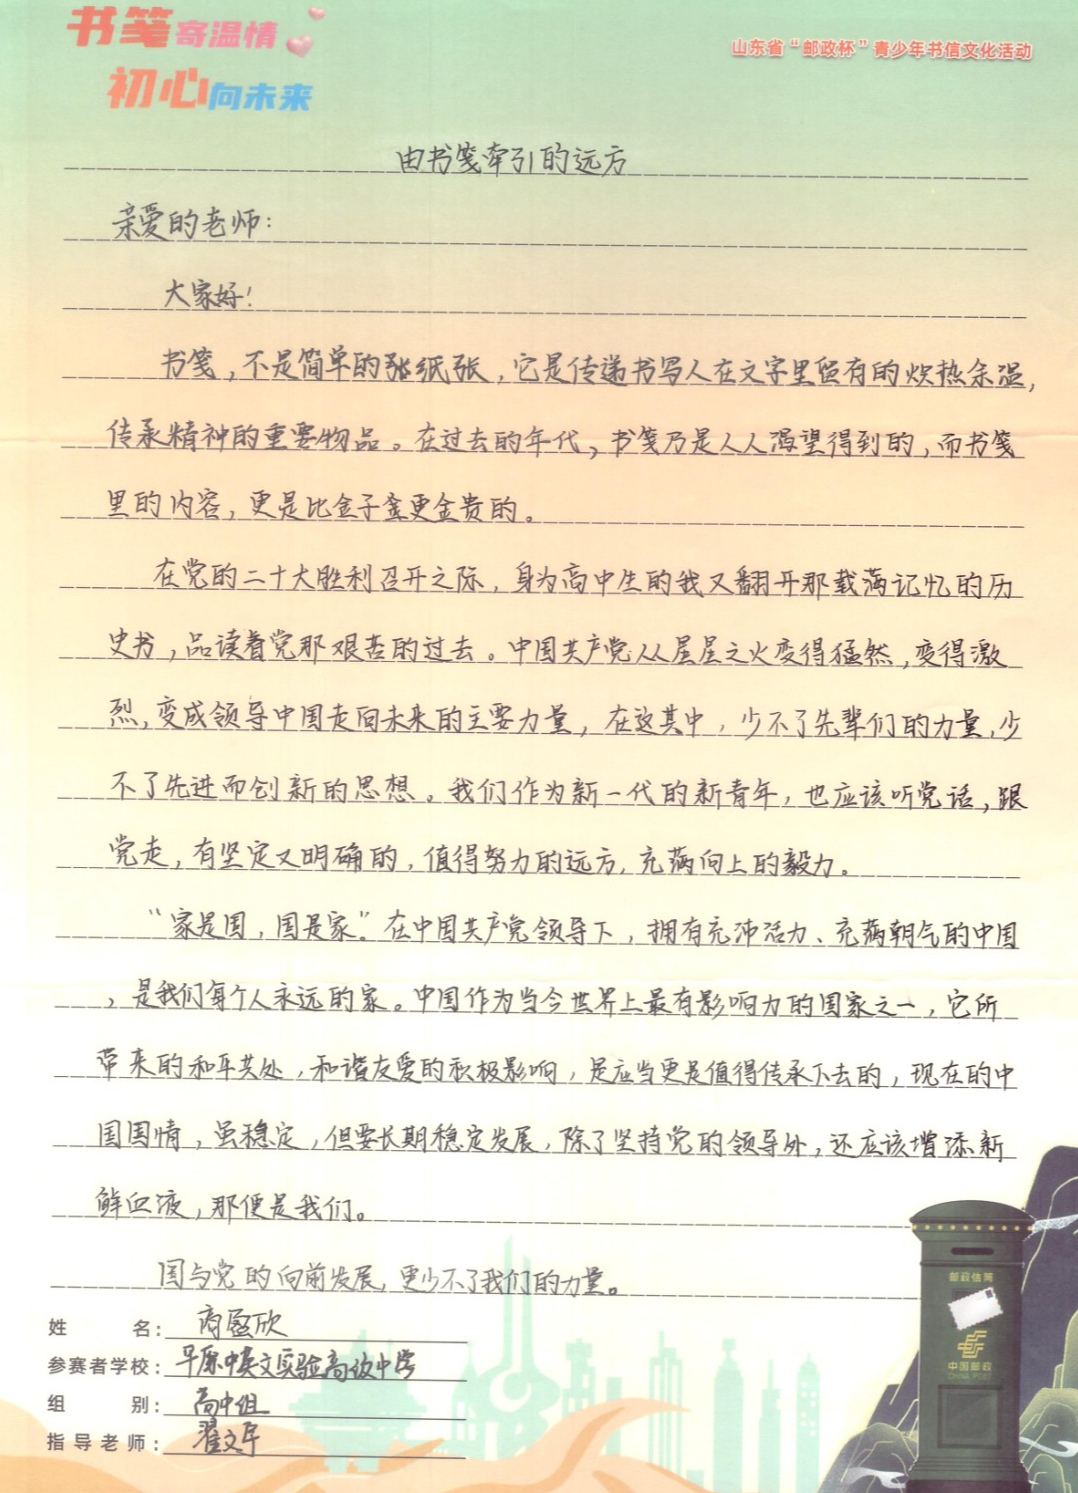 书笺寄温情
初心向未来
山东省“邮政杯”青少年书信文化活动
由书笺牵引的远方
亲爱的老师：
大家好！
书笺，不是简单的张纸张，它是传递书写人在文字里留有的炽热余温，
传承精神的重要物品。在过去的年代，书笺乃是人人渴望得到的，而书笺
里的内容，更是比金子金更金贵的。
在党的二十大胜利召开之际，身为高中生的我又翻开那载满记忆的历
史书，品读着党那艰苦的过去。中国共产党从星星之火变得猛然，变得激
烈，变成领导中国走向未来的主要力量，在这其中，少不了先辈们的力量，少
不了先进而创新的思想。我们作为新一代的新青年，也应该听党话，跟
党走，有坚定又明确的，值得努力的远方，充满向上的毅力。
“家是国，国是家。”在中国共产党领导下，拥有充沛活力、充满朝气的中国
，是我们每个人永远的家。中国作为当今世界上最有影响力的国家之一，它所
带来的和平共处，和谐友爱的积极影响，是应当更是值得传承下去的，现在的中
国国情，虽稳定，但要长期稳定发展，除了坚持党的领导外，还应该增添新
鲜血液，那便是我们。
国与党的向前发展，更少不了我们的力量。
姓名：商盈欣
参赛者学校：平原中英文实验高级中学
组别：高中组
指导老师：翟文军
邮政信筒
中国邮政
CHINA POST